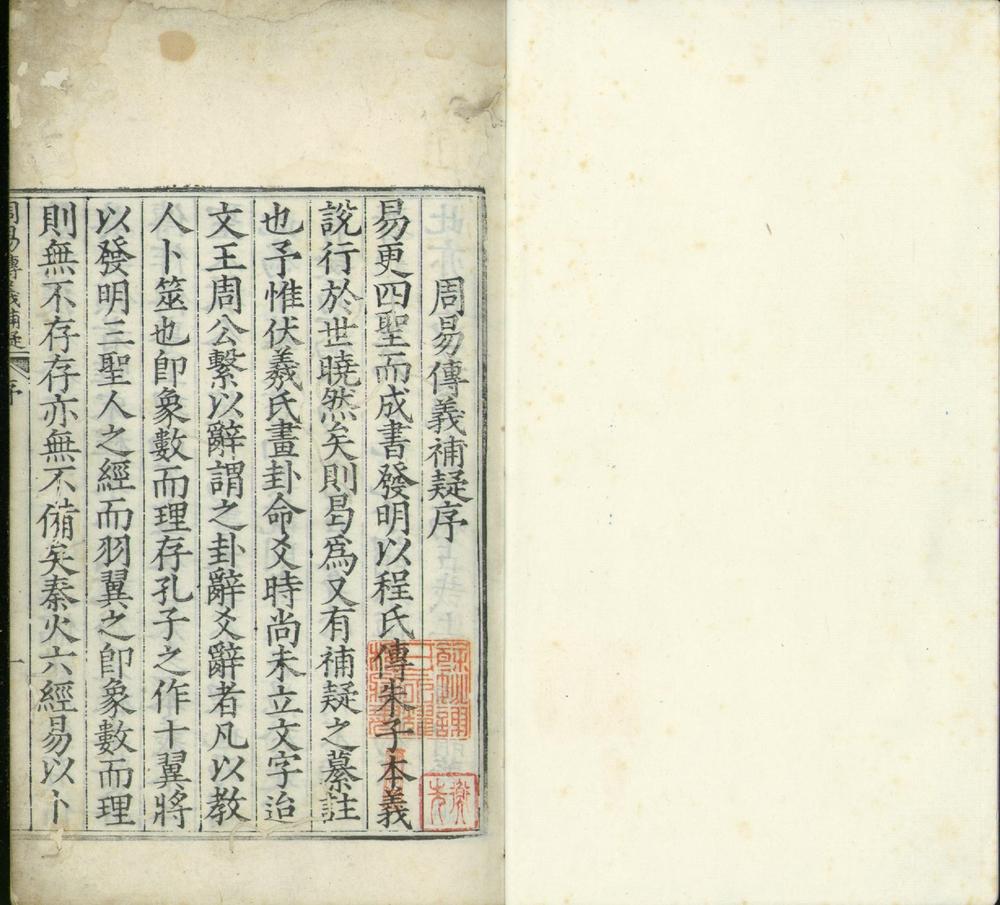 周易傳義補疑序
易更四聖而成書發明以程氏傳朱子本義
說行於世曉然矣則曷爲又有補疑之纂註
也予惟伏羲氏畫卦命爻時尚未立文字迨
文王周公繫以辭謂之卦辭爻辭者凡以教
人卜筮也卽象數而理存孔子之作十翼將
以發明三聖人之經而羽翼之卽象數而理
則無不存存亦無不備矣秦火六經易以卜
周易傳義補疑
序
一